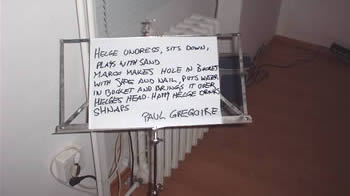 HELGE UNDRESS, SITS DOWN,
PLAYS WITH SAND
MARCO MAKES HOLE IN BUCKET
WITH SAGE AND NAIL, PUTS WATER
IN BUCKET AND BRINGS IT OVER
HELGES HEAD. HAPPY HELGE DRINKS
SHNAPS
PAUL GREGOIRE